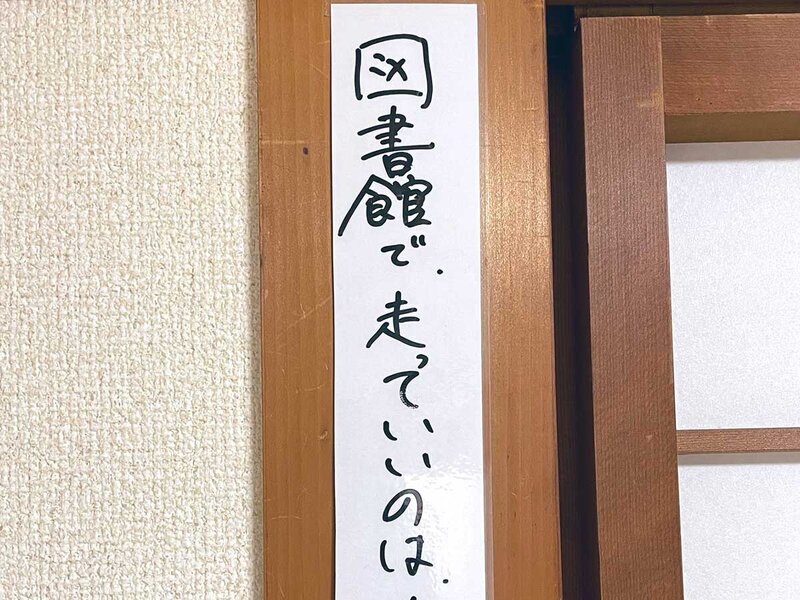 図書館で.走っていいのは.